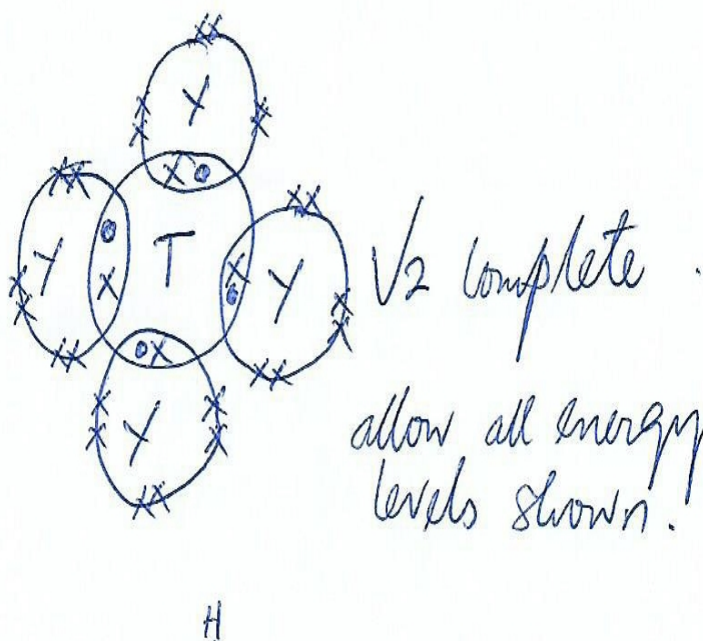 Y
Y T Y √2 complete.
Y
allow all energy
levels shown.
H